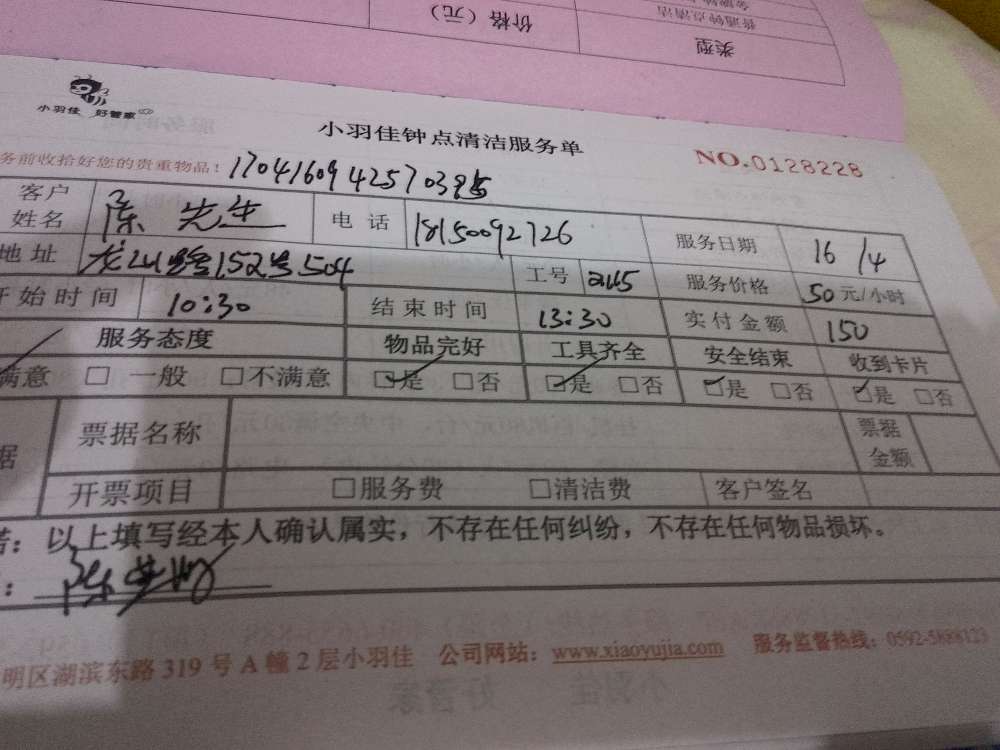 价格（元）
类型
普通钟点清洁
小羽佳 好管家
小羽佳钟点清洁服务单
NO.0128228
务前收拾好您的贵重物品！
客户姓名 陈先生 电话 18150092726 服务日期 16/4
地址 152号504 工号 服务价格 50元/小时
开始时间 10:30 结束时间 13:30 实付金额 150
服务态度 物品完好 工具齐全 安全结束 收到卡片
满意 □一般 □不满意 □是 □否 □是 □否 □是 □否 □是 □否
据 票据名称 票据金额
开票项目 □服务费 □清洁费 客户签名
诺：以上填写经本人确认属实，不存在任何纠纷，不存在任何物品损坏。
明区湖滨东路319号A幢2层小羽佳 公司网站：www.xiaoyujia.com 服务监督热线：0592-5888123